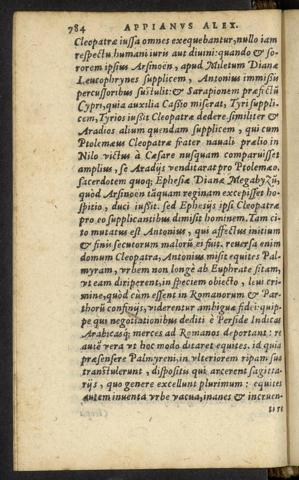 784 APPIANVS ALEX.
Cleopatræ iussa omnes exequebantur, nullo iam
respectu humani iuris aut diuini: quando & so-
rorem ipsius Arsinoën, apud Miletum Dianæ
Leucophrynes supplicem, Antonius immissis
percussoribus sustulit: & Sarapionem præfectū
Cypri, quia auxilia Cassio miserat, Tyri suppli-
cem, Tyrios iussit Cleopatræ dedere. similiter &
Aradios alium quendam supplicem, qui cum
Ptolemæus Cleopatræ frater nauali prælio in
Nilo victus à Cæsare nusquam comparuisset
amplius, se Aradijs venditarat pro Ptolemæo.
sacerdotem quoq; Ephesiæ Dianæ Megabyzū,
quòd Arsinoën tāquam reginam excepisset ho-
spitio, duci iussit. sed Ephesijs ipsi Cleopatræ
pro eo supplicantibus dimisit hominem. Tam ci-
to mutatus est Antonius, qui affectus initium
& finis secutorum malorū ei fuit. reuersa enim
domum Cleopatra, Antonius misit equites Pal-
myram, vrbem non longè ab Euphrate sitam,
vt eam diriperent, in speciem obiecto, leui cri-
mine, quòd cùm essent in Romanorum & Par-
thorū confinijs, viderentur ambiguæ fidei: quip-
pe qui negotiationibus dediti è Perside Indicas
Arabicasq; merces ad Romanos deportant: re
autē vera vt hoc modo ditaret equites. id quia
præsensere Palmyreni, in vlteriorem ripam sua
transtulerunt, dispositis qui arcerent sagitta-
rijs, quo genere excellunt plurimum: equites
autem inuenta vrbe vacua, inanes & incruen-